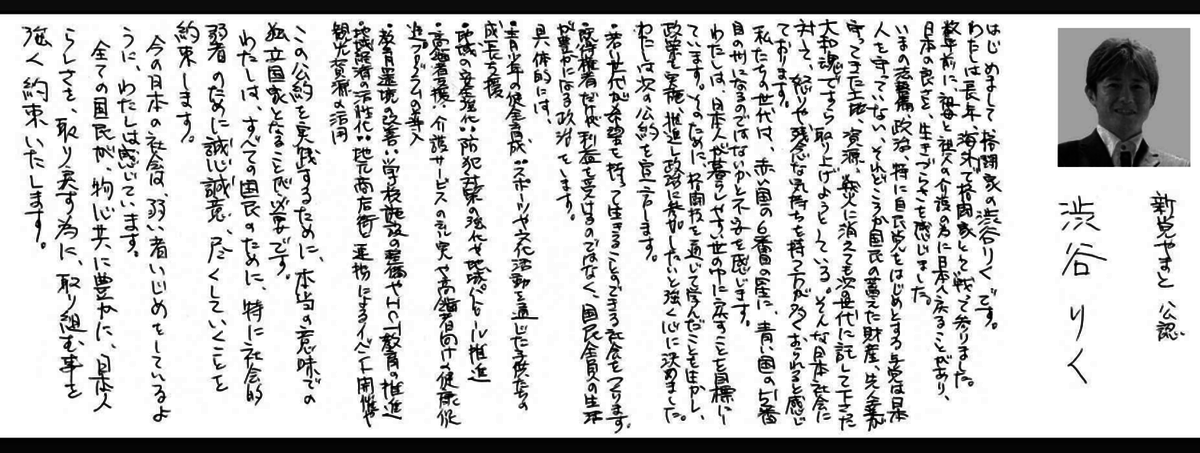 新党やまと 公認
渋谷 りく
はじめまして 格闘家の渋谷りくです。
わたしは長年、海外で格闘家として戦って参りました。
数年前に、祖母と祖父の介護の為に日本へ戻ることがあり、
日本の良さと、生きづらさを感じました。
いまの 政治は、特に自民党をはじめとする与党は日本
人を守っていない。それどころか国民の蓄えた財産、先人達が
守ってきた土地、資源、戦火に消えても次世代に託して下さった
大和魂ですら取り上げようとしている。そんな日本社会に
対して、怒りや残念な気持ちを持つ方が多くおられると感じ
ております。
私たちの世代は、赤い国の6番目の星に、青い国の51番
目の州になるのではないかと不安を感じます。
わたしは、日本人が暮らしやすい世の中に戻すことを目標にし
ています。そのために、格闘技を通じて学んだことを生かし、
政策を実施、推進し政治に参加したいと強く心に決めました。
わたしは次の公約を宣言します。
・若い世代が希望を持って生きることのできる社会をつくります。
・既得権者だけが利益を受けるのではなく、国民全員の生活
が豊かになる政治をします。
具体的には、
・青少年の健全育成:スポーツや文化活動を通じた子供たちの
成長支援
・地域の安全強化:防犯対策の強化や地域パトロール推進
・高齢者支援:介護サービスの充実や高齢者向け健康促
進プログラムの導入
・教育環境の改善:学校施設の整備やICT教育の推進
・地域経済の活性化:地元商店街の連携によるイベント開催や
観光資源の活用
この公約を実践するために、本当の意味での
独立国家となることが必要です。
わたしは、すべての国民のために、特に社会的
弱者のために誠心誠意、尽くしていくことを
約束します。
今の日本の社会は、弱い者いじめをしているよ
うに、わたしは感じています。
全ての国民が、物心共に豊かに、日本人
らしさを、取り戻す為に、取り組む事を
強く約束いたします。